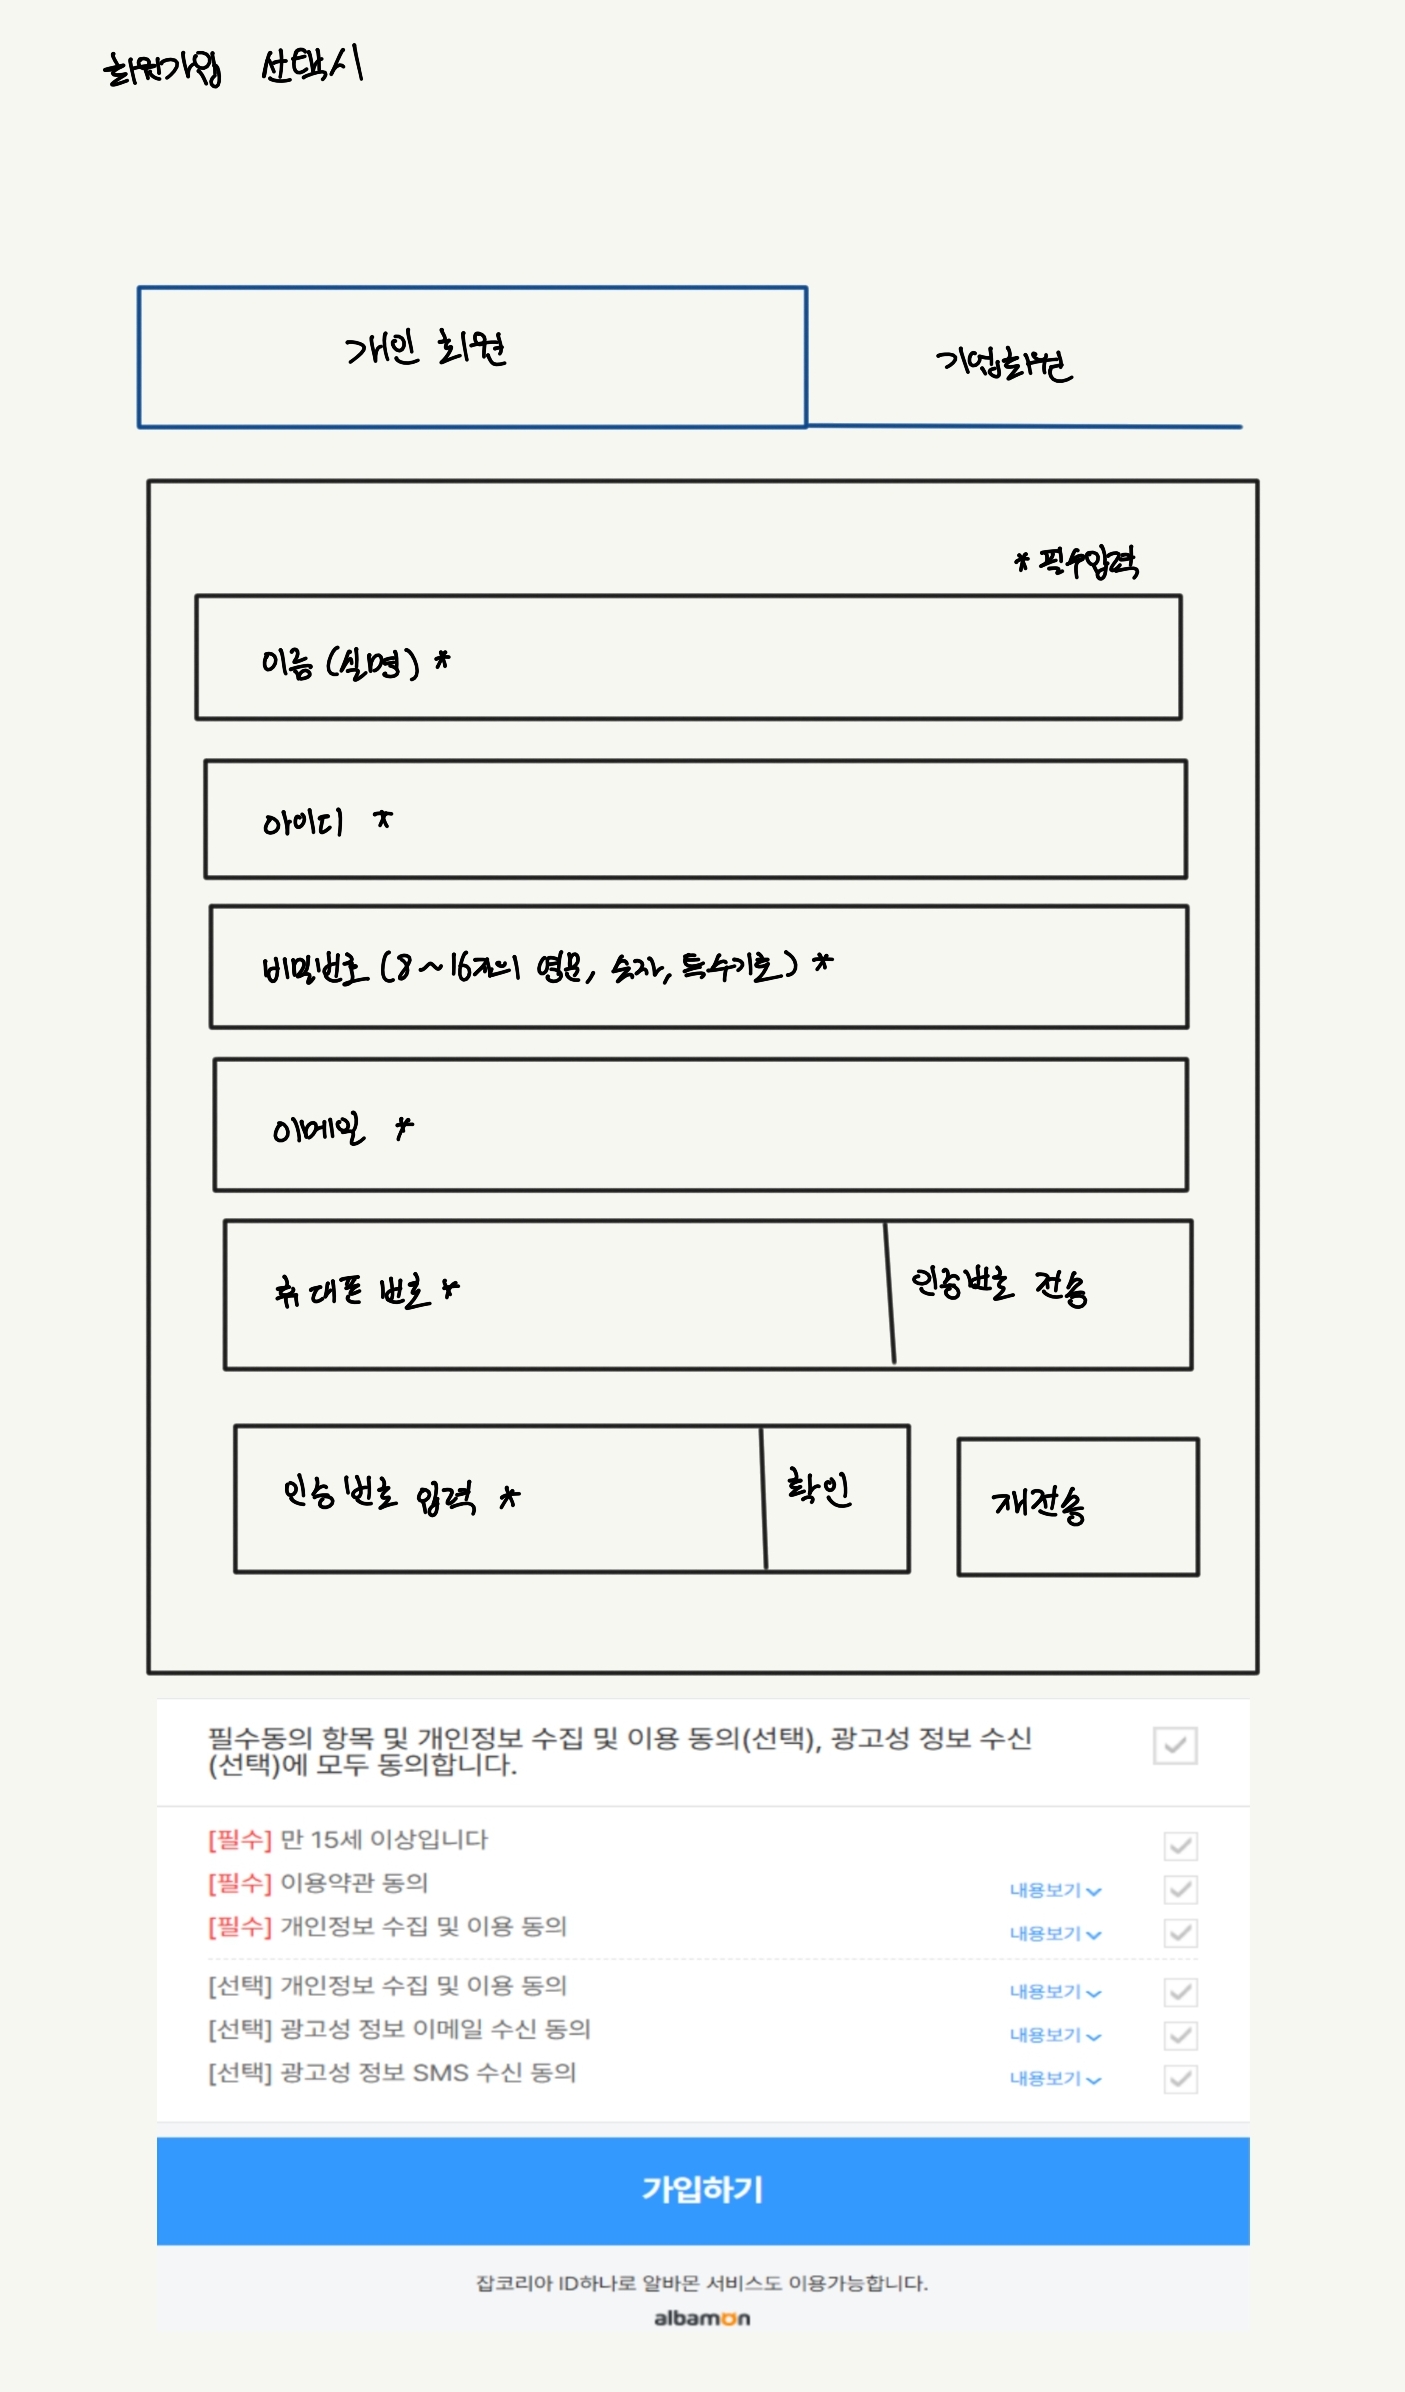 회원가입 선택시
개인 회원
기업회원
* 필수입력
이름 (실명) *
아이디 *
비밀번호 (8~16자의 영문, 숫자, 특수기호) *
이메일 *
휴대폰 번호 *
인증번호 전송
인증번호 입력 *
확인
재전송
필수동의 항목 및 개인정보 수집 및 이용 동의(선택), 광고성 정보 수신
(선택)에 모두 동의합니다.
[필수] 만 15세 이상입니다
[필수] 이용약관 동의 내용보기
[필수] 개인정보 수집 및 이용 동의 내용보기
[선택] 개인정보 수집 및 이용 동의 내용보기
[선택] 광고성 정보 이메일 수신 동의 내용보기
[선택] 광고성 정보 SMS 수신 동의 내용보기
가입하기
잡코리아 ID하나로 알바몬 서비스도 이용가능합니다.
albamon